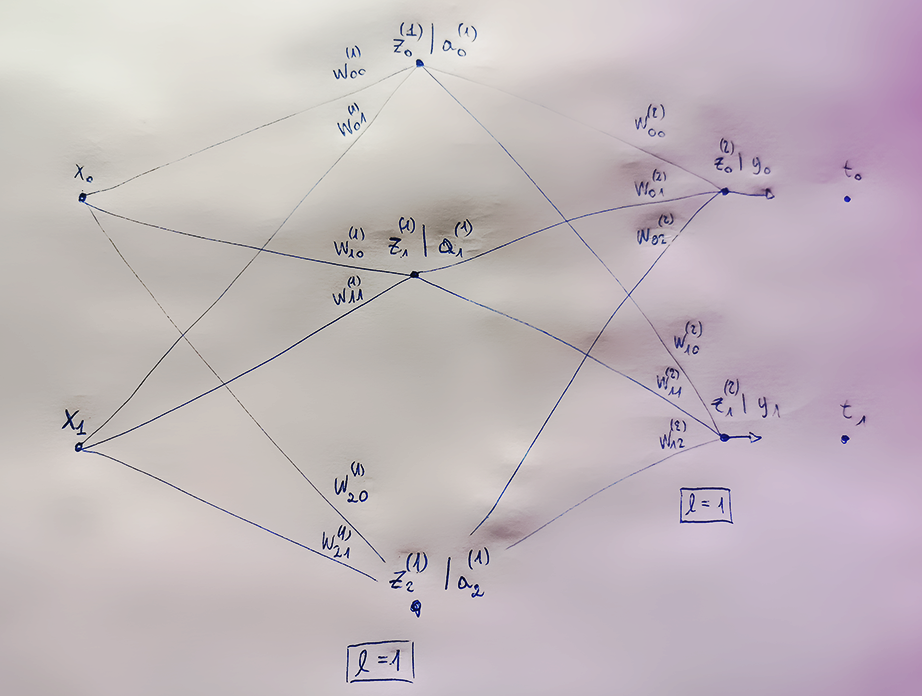 z₀⁽¹⁾ | a₀⁽¹⁾
w₀₀⁽¹⁾
w₀₁⁽¹⁾
w₀₀⁽²⁾
x₀
z₀⁽²⁾ | y₀
t₀
w₀₁⁽²⁾
w₀₂⁽²⁾
w₁₀⁽¹⁾
z₁⁽¹⁾ | a₁⁽¹⁾
w₁₁⁽¹⁾
w₁₀⁽²⁾
w₁₁⁽²⁾
x₁
z₁⁽²⁾ | y₁
t₁
w₁₂⁽²⁾
w₂₀⁽¹⁾
l = 1
w₂₁⁽¹⁾
z₂⁽¹⁾ | a₂⁽¹⁾
l = 1